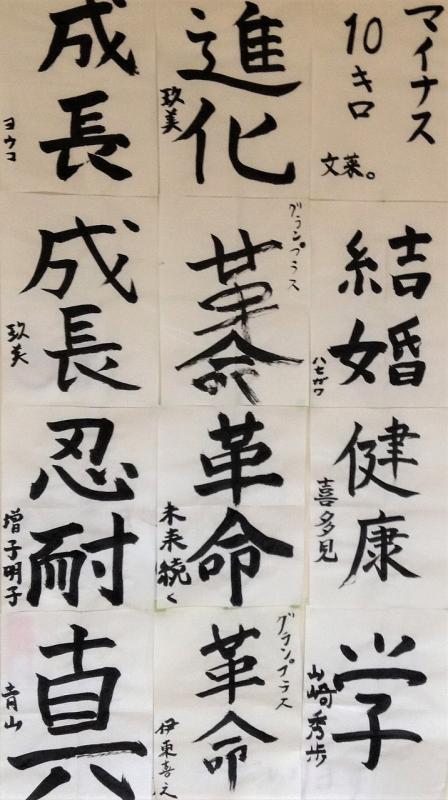 マイナス
10キロ
文菜。
進化
玖美
成長
ヨウコ
結婚
ハセガワ
グランプラス
革命
成長
玖美
健康
喜多見
革命
未来続く
忍耐
増子明子
学
山崎秀歩
グランプラス
革命
伊東喜之
真
青山